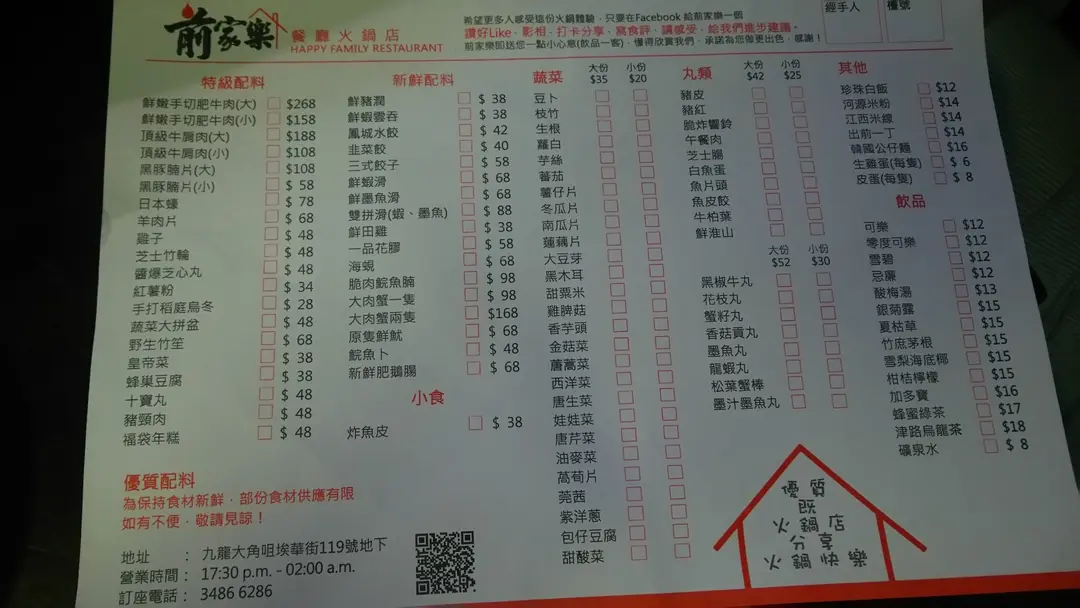 前家樂
餐廳火鍋店
HAPPY FAMILY RESTAURANT
希望更多人感受這份火鍋體驗，只要在Facebook 給前家樂一個
讚好Like、影相、打卡分享，寫食評、講感受，給我們進步建議。
前家樂即送您一點小心意(飲品一客)，懂得欣賞我們，承諾為您做更出色，感謝！
經手人
檯號
特級配料
鮮嫩手切肥牛肉(大) $268
鮮嫩手切肥牛肉(小) $158
頂級牛肩肉(大) $188
頂級牛肩肉(小) $108
黑豚腩片(大) $108
黑豚腩片(小) $ 58
日本蠔 $ 78
羊肉片 $ 68
雞子 $ 48
芝士竹輪 $ 48
醬爆芝心丸 $ 48
紅薯粉 $ 34
手打稻庭烏冬 $ 28
蔬菜大拼盆 $ 48
野生竹笙 $ 68
皇帝菜 $ 38
蜂巢豆腐 $ 38
十寶丸 $ 48
豬頸肉 $ 48
福袋年糕 $ 48
新鮮配料
鮮豬潤 $ 38
鮮蝦雲吞 $ 38
鳳城水餃 $ 42
韭菜餃 $ 40
三式餃子 $ 58
鮮蝦滑 $ 68
鮮墨魚滑 $ 68
雙拼滑(蝦、墨魚) $ 88
鮮田雞 $ 38
一品花膠 $ 58
海蜆 $ 68
脆肉鯇魚腩 $ 98
大肉蟹一隻 $ 98
大肉蟹兩隻 $168
原隻鮮魷 $ 68
鯇魚卜 $ 48
新鮮肥鵝腸 $ 68
小食
炸魚皮 $ 38
蔬菜 大份 $35 小份 $20
豆卜
枝竹
生根
蘿白
芋絲
蕃茄
薯仔片
冬瓜片
南瓜片
蓮藕片
大豆芽
黑木耳
甜粟米
雞脾菇
香芋頭
金菇菜
蘑蒿菜
西洋菜
唐生菜
娃娃菜
唐芹菜
油麥菜
萵荀片
莞茜
紫洋蔥
包仔豆腐
甜酸菜
丸類 大份 $42 小份 $25
豬皮
豬紅
脆炸響鈴
午餐肉
芝士腸
白魚蛋
魚片頭
魚皮餃
牛柏葉
鮮淮山
大份 $52 小份 $30
黑椒牛丸
花枝丸
蟹籽丸
香菇貢丸
墨魚丸
龍蝦丸
松葉蟹棒
墨汁墨魚丸
其他
珍珠白飯 $12
河源米粉 $14
江西米線 $14
出前一丁 $14
韓國公仔麵 $16
生雞蛋(每隻) $ 6
皮蛋(每隻) $ 8
飲品
可樂 $12
零度可樂 $12
雪碧 $12
忌廉 $12
酸梅湯 $13
銀菊露 $15
夏枯草 $15
竹庶茅根 $15
雪梨海底椰 $15
柑桔檸檬 $15
加多寶 $16
蜂蜜綠茶 $17
津路烏龍茶 $18
礦泉水 $ 8
優質配料
為保持食材新鮮，部份食材供應有限
如有不便，敬請見諒！
地址 ： 九龍大角咀埃華街119號地下
營業時間： 17:30 p.m. - 02:00 a.m.
訂座電話： 3486 6286
優質
既
火鍋店
分享
火鍋快樂